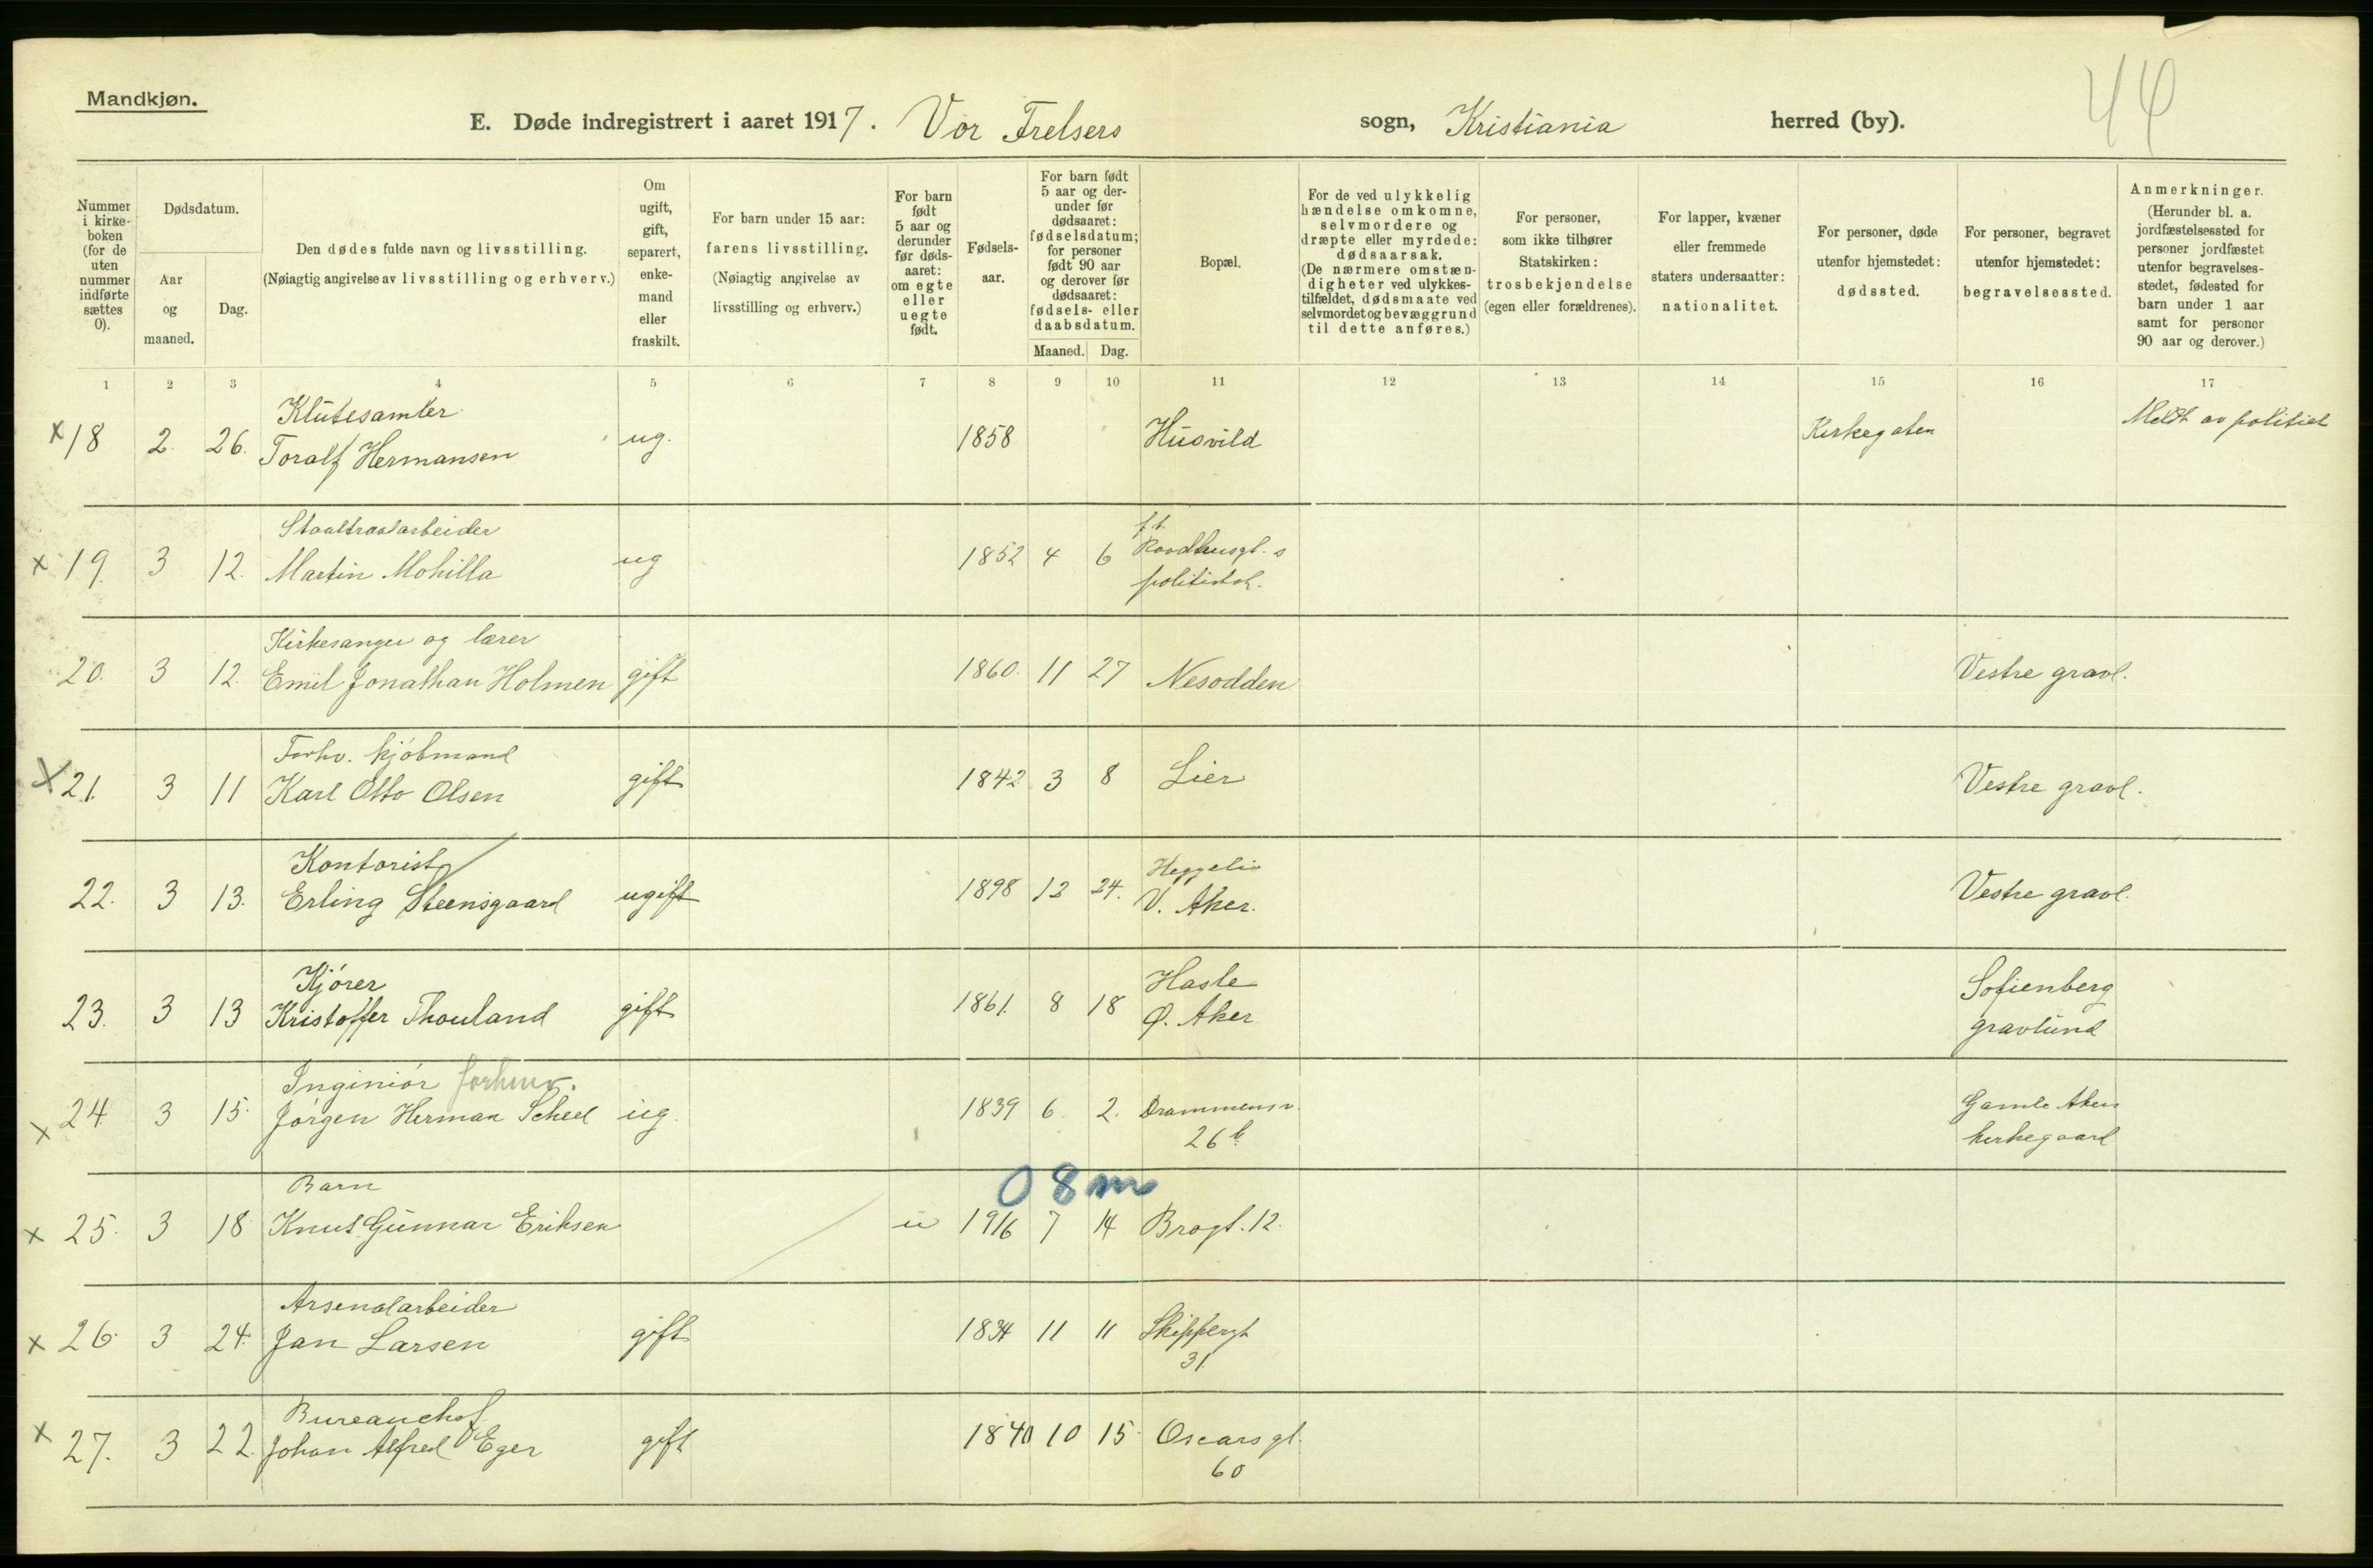 Mandkjøn.
44
E. Døde indregistrert i aaret 1917. Vor Frelsers sogn, Kristiania herred (by).
Nummer i kirke-boken (for de uten nummer indførte sættes 0).
Dødsdatum.
Aar og maaned.
Dag.
Den dødes fulde navn og livsstilling.
(Nøiagtig angivelse av livsstilling og erhverv.)
Om ugift, gift, separert, enke-mand eller fraskilt.
For barn under 15 aar: farens livsstilling.
(Nøiagtig angivelse av livsstilling og erhverv.)
For barn født 5 aar og derunder før døds-aaret: om egte eller uegte født.
Fødsels-aar.
For barn født 5 aar og der-under før dødsaaret: fødselsdatum; for personer født 90 aar og derover før dødsaaret: fødsels- eller daabsdatum.
Maaned. Dag.
Bopæl.
For de ved ulykkelig hændelse omkomne, selvmordere og dræpte eller myrdede: dødsaarsak.
(De nærmere omstæn-digheter ved ulykkes-tilfældet, dødsmaate ved selvmordet og bevæggrund til dette anføres.)
For personer, som ikke tilhører Statskirken: trosbekjendelse (egen eller forældrenes).
For lapper, kvæner eller fremmede staters undersaatter: nationalitet.
For personer, døde utenfor hjemstedet: dødssted.
For personer, begravet utenfor hjemstedet: begravelsessted.
Anmerkninger.
(Herunder bl. a. jordfæstelsessted for personer jordfæstet utenfor begravelses-stedet, fødested for barn under 1 aar samt for personer 90 aar og derover.)
1 2 3 4 5 6 7 8 9 10 11 12 13 14 15 16 17
Klutesamler
x 18 2. 26. Toralf Hermansen ug. 1858 Husvild Kirkegaten Meldt av politiet
Staaltraadarbeider
x 19. 3 12. Martin Mohilla ug 1852 4 6 Raadhusgt. s
Kirkesanger og lærer
20. 3 12. Emil Jonathan Holmen gift 1860. 11 27 Nesodden Vestre gravl.
Forhv. kjøbmand
x 21. 3 11 Karl Otto Olsen gift 1842 3 8 Lier Vestre gravl.
Kontorist Heggeli
22. 3 13. Erling Steensgaard ugift 1898 12 24. V. Aker. Vestre gravl.
Kjører Hasle Sofienberg
23. 3 13 Kristoffer Thouland gift 1861. 8 18 Ø. Aker gravlund
Inginiør forhenv.
x 24 3 15. Jørgen Herman Scheel ug. 1839 6 2. Drammensv. Gamle Akers
26 b. kirkegaard
Barn 0 8 m
x 25. 3 18 Knut Gunnar Eriksen u 1916 7 14 Brogt. 12.
Arsenalarbeider
x 26. 3 24. Jan Larsen gift 1834 11 11 Skippergt
31
Bureauchef
x 27. 3 22. Johan Alfred Eger gift 1840 10 15. Oscarsgt.
60